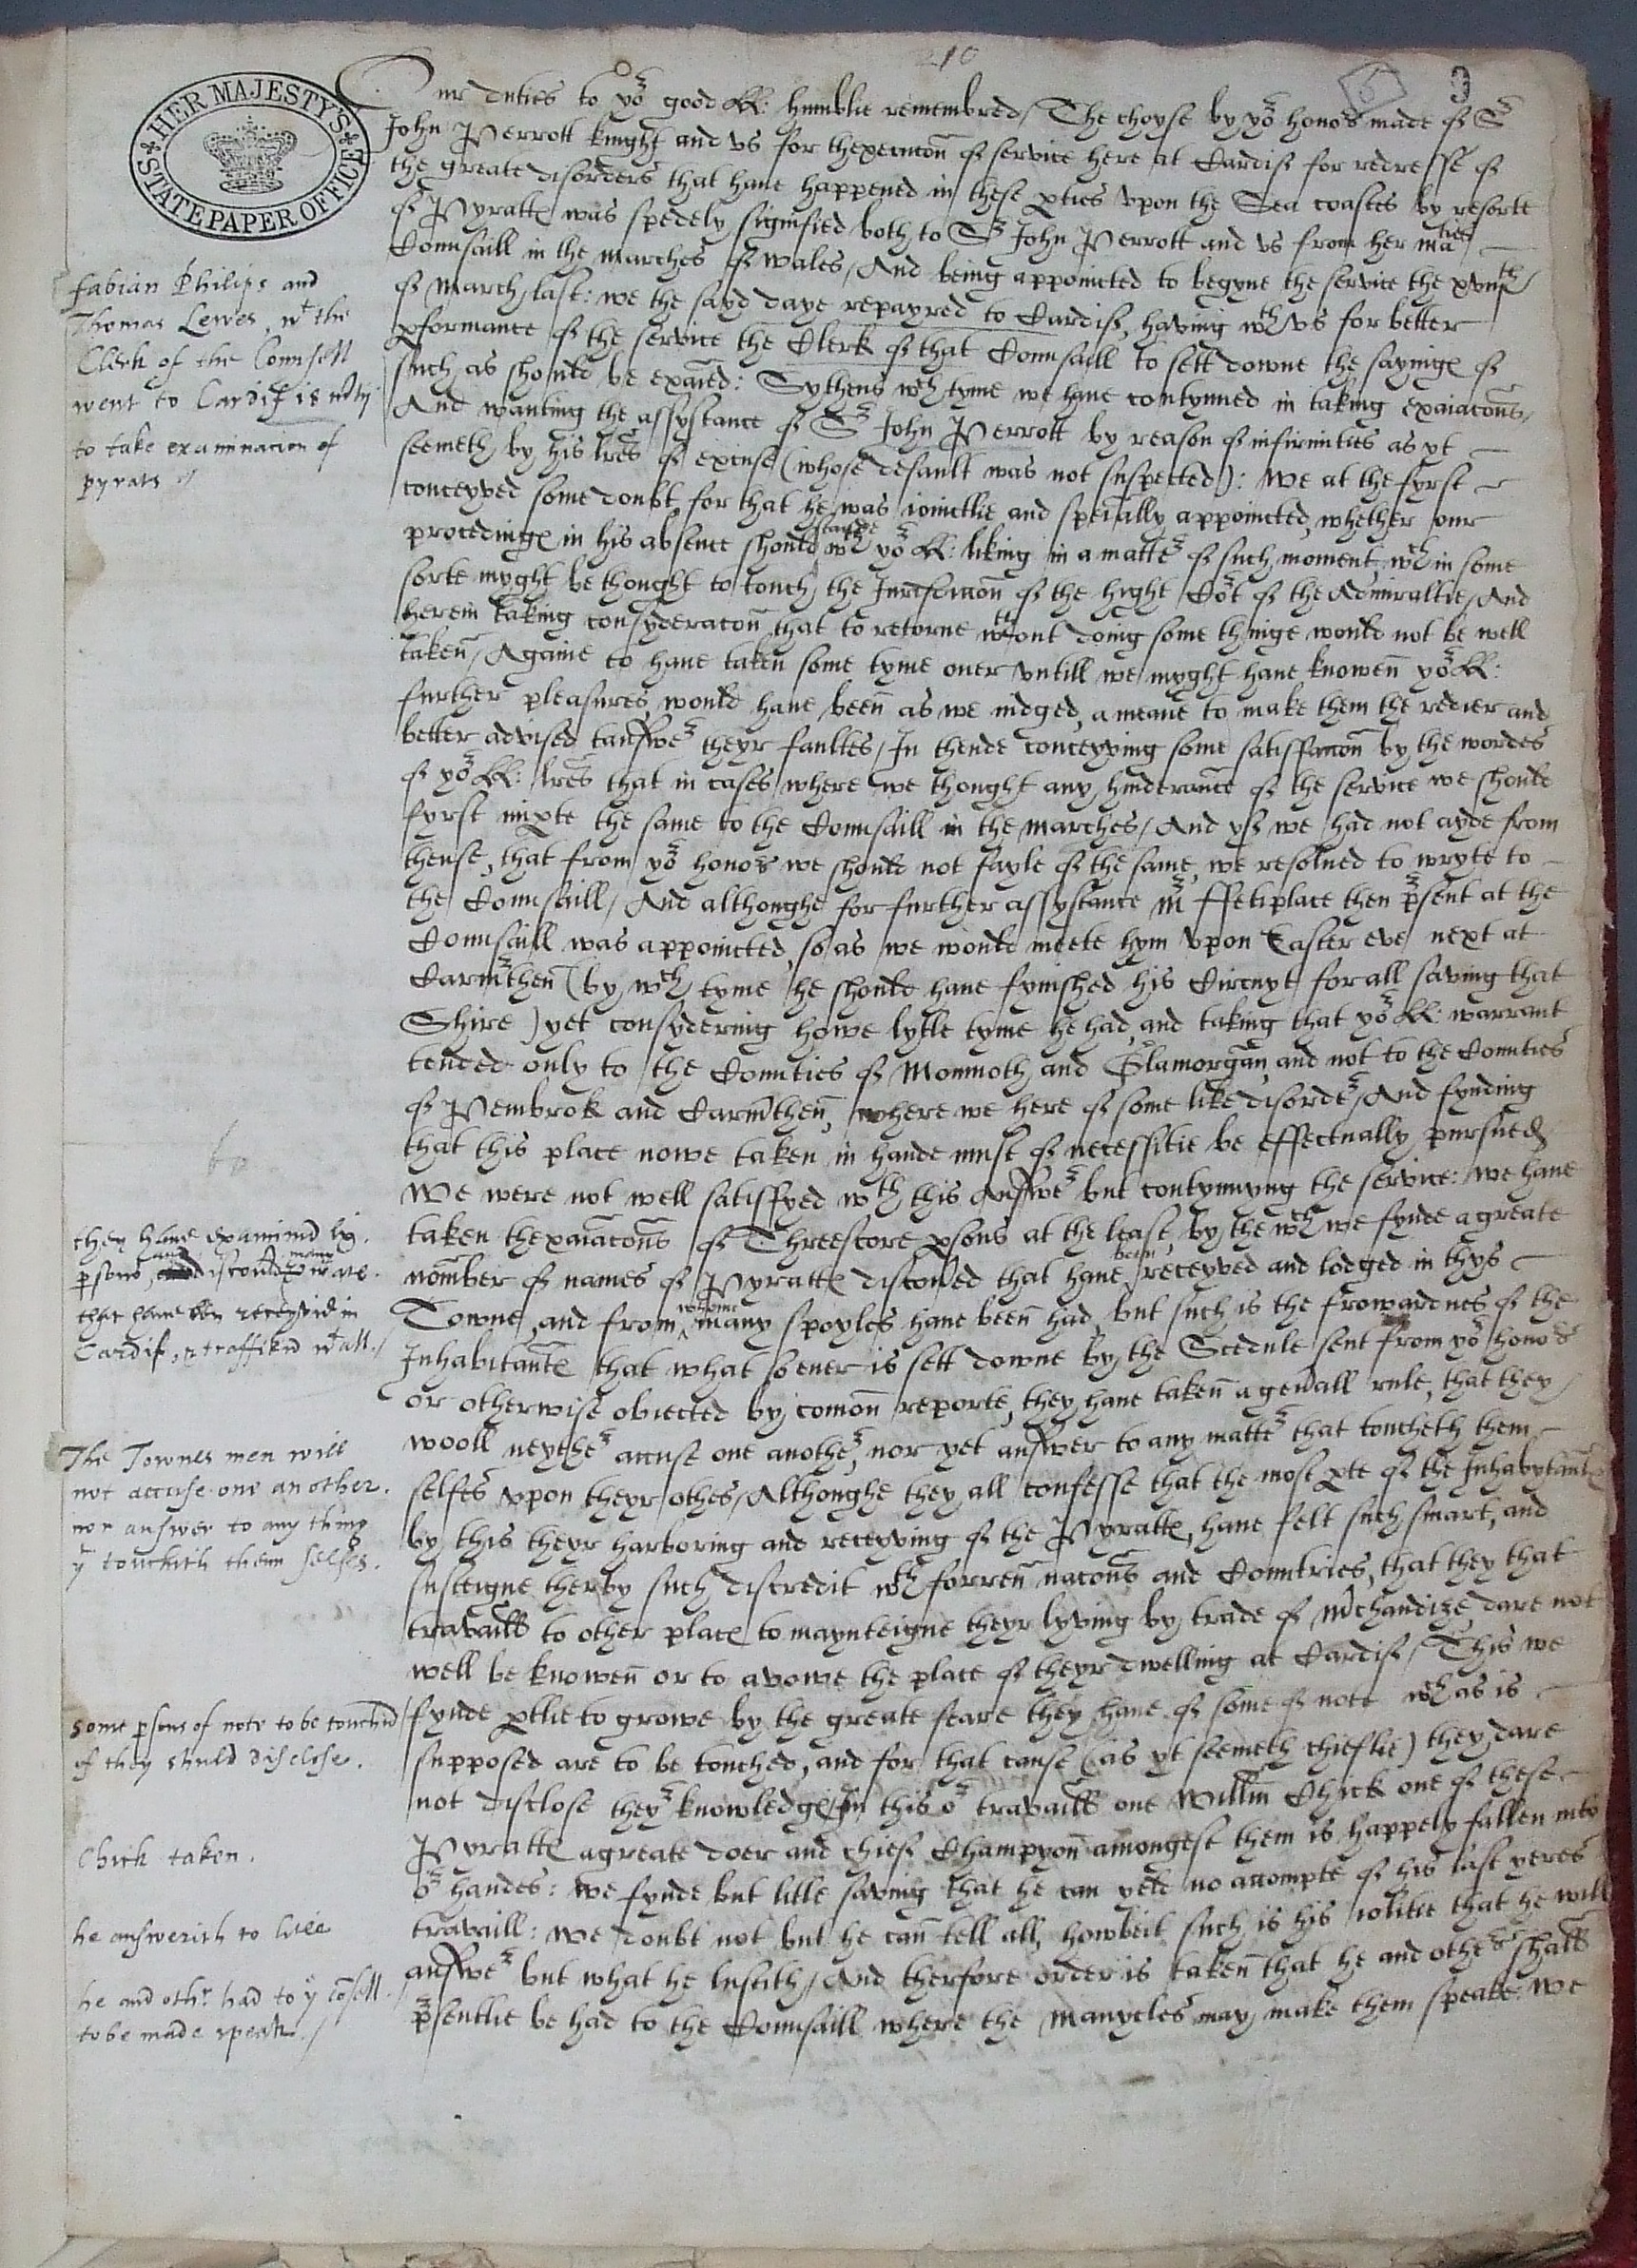 210
9
HER MAJESTY'S
STATE PAPER OFFICE
Our duties to yor good LL: humblie remembred / The choyse by yor honors made of Sr
John Perrott knight and vs for thexecucoñ of service here at Cardif for redresse of
the greate disorders that haue happened in these pties vpon the Sea coastes by resorte
of Pyratte was spedely signified both to Sr John Perrott and vs from her maties
Counsaill in the marches of wales / And being appoincted to begyne the service the xviijth
of March last: we the sayd daye repayred to Cardif, having wth vs for better
pformance of the service the Clerk of that Counsaill to sett downe the sayinge of
such as should be exaied: Sythens wch tyme we haue contynued in taking exaiacons,
And wanting the assystance of Sr John Perrott by reason of infirmities as yt
seemeth by his lres of excuse (whose default was not suspected): We at the fyrst
conceyved some doubt, for that he was ioinctlie and specially appoincted, whether our
procedinge in his absence should stande wth yor LL: liking in a matter of such moment, wch in some
sorte myght be thought to touch the Jurisdiccoñ of the hight Cort of the Admiraltie / And
herein taking consyderacoñ that to retorne wthout doing some thinge would not be well
taken / Againe to haue taken some tyme ouer vntill we myght haue knowen yor LL:
further pleasures, would haue been as we iudged, a meane to make them the redier and
better advised tanswer theyr faultes / In thende conceyving some satisffaccoñ by the wordes
of yor LL: lres that in cases where we thought any hinderance of the service we should
fyrst impte the same to the Counsaill in the marches / And yf we had not ayde from
thense, that from yor honors we should not fayle of the same, we resolued to wryte to
the Counsaill / And althoughe for further assystance mr ffetiplace then psent at the
Counsaill was appoincted, so as we would meete hym vpon Easter eve next at
Carmthen (by wch tyme he should haue fynished his Circuyt for all saving that
Shire) yet consydering howe lytle tyme he had, and taking that yor LL: warrant
tended only to the Counties of Monmoth and Glamorgan, and not to the Counties
of Pembrok and Carmthen, where we here of some like disorder / And fynding
that this place nowe taken in hande must of necessitie be effectually pursued,
We were not well satisffyed wth this answer but contynuyng the service: we haue
taken thexaiacons of Threescore psons at the least, by the wch we fynde a greate
nomber of names of Pyratte discoued that haue been receyved and lodged in thys
Towne, and from whome many spoyles haue been had, but such is the frowardnes of the
Inhabitante that what so euer is sett downe by the Scedule sent from yor honors
or otherwise obiected by comon reporte, they haue taken a genall rule, that they
wooll neyther accuse one another, nor yet answer to any matter that toucheth them
selfes vpon theyr othes / Althoughe they all confesse that the most pte of the Inhabytante
by this theyr harboring and receyving of the Pyratte, haue felt such smart, and
susteigne therby such discredit wth forren nacons and Countries, that they that
travaill to other place to maynteigne theyr lyving by trade of mchandize dare not
well be knowen or to avowe the place of theyr dwelling at Cardif / This we
fynde ptlie to growe by the greate feare they haue of some of note wch as is
supposed are to be touched, and for that cause (as yt seemeth chieflie) they dare
not disclose theyr knowledge / In this or travaill one Willm Chick one of these
Pyratte a greate doer and chief Champyon amongest them is happely fallen into
or handes: we fynde but litle saving that he can yeld no accompte of his last yeres
travaill: we doubt not but he can tell all, howbeit such is his iolitie that he will
answer but what he lusteth / And therfore order is taken that he and others shall
psentlie be had to the Counsaill where the manycles may make them speake: We
fabian Philips and
Thomas Lewes, wt the
Clerk of the Counsell
went to Cardif 18 mtij
to take examinacion of
pyrats
they haue examined lx.
psons, and discoued many pirats
that haue ben receyvid in
Cardif, & traffikid wt all.
The Townes men will
not accuse one an other.
nor answer to any thing
yt touchith them selfes.
some psons of note to be touchid
if they shuld disclose.
Chick taken.
he answerith to litle
he and othr had to ye cosell.
to be made speak.